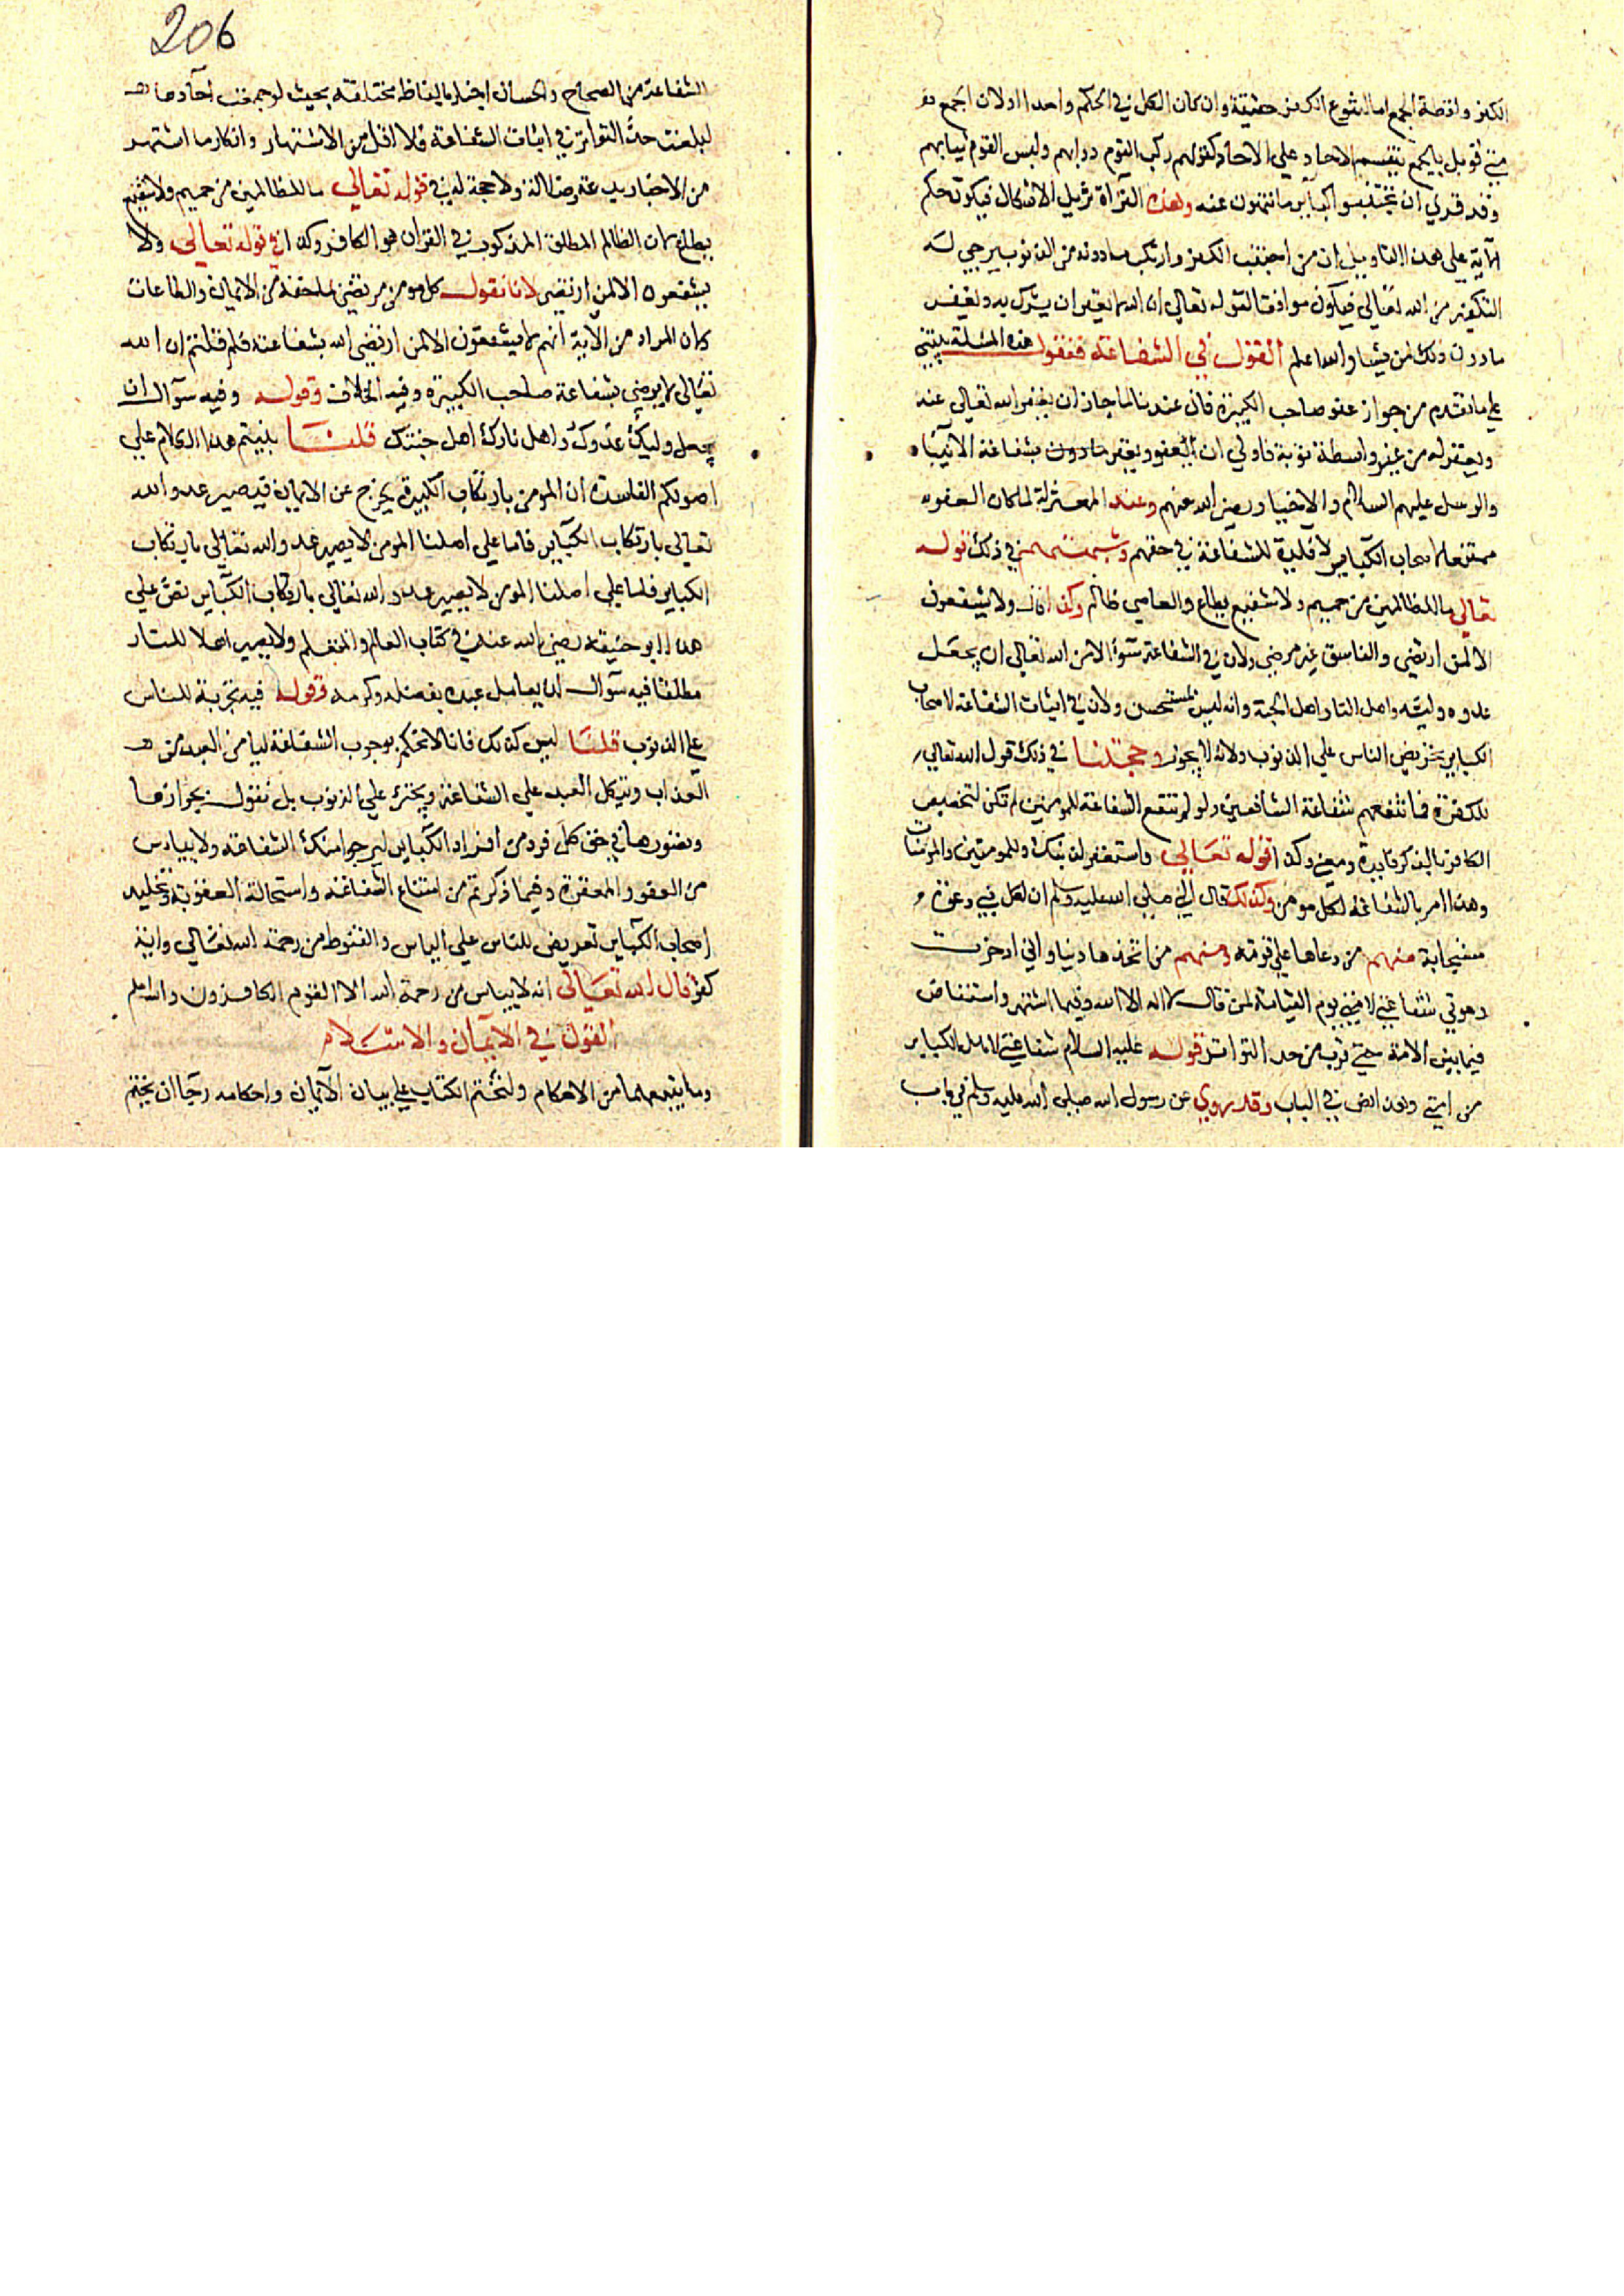 الكفر واقصة الجمع اما لتنوع الكفر حقيقة وان كان الكل في الحكم واحدا اولان الجمع
متى قوبل بالجمع ينقسم الاحاد علي الاحاد كقولهم ركب القوم دوابهم ولبس القوم ثيابهم
وقد قري ان تجتنبوا كبير ما تنهون عنه وهذه القراة تزيل الاشكال فيكون حكم
الآية علي هذا التاويل ان من اجتنب الكفر وارتكب ما دونه من الذنوب يرجي له
التكفير من الله تعالي فيكون موافقا لقوله تعالي ان الله لا يغفر ان يشرك به ويغفر
ما دون ذلك لمن يشا والله اعلم القول في الشفاعة فنقول هذه المسئلة تبتني
علي ما تقدم من جواز عفو صاحب الكبيرة فان عندنا لما جاز ان يغفر الله تعالي عنه
ويغفر له من غير واسطة توبة فاولي ان يعفو ويغفر ما دون بشفاعة الانبيا
والرسل عليهم السلام والاخيار رضي الله عنهم وعند المعتزلة لما كان العفو
ممتنعا لاصحاب الكباير لا فايدة للشفاعة في حقهم وشبهتهم في ذلك قوله
تعالي ما للظالمين من حميم ولا شفيع يطاع والعاصي ظالم وكذا قال ولا يشفعون
الا لمن ارتضي والفاسق غير مرضي ولان في الشفاعة سوالا من الله تعالي ان يجعل
عدوه وليه واهل النار اهل الجنة وانه ليس بمستحسن ولان في اثبات الشفاعة لاصحاب
الكباير تحريض الناس علي الذنوب ولانه لا يجوز وحجتنا في ذلك قول الله تعالي
للكفرة فما تنفعهم شفاعة الشافعين ولو لم تنفع الشفاعة للمومنين لم تكن لتخصيص
الكافر بالذكر فايدة ومعني وكذا قوله تعالي واستغفر لذنبك وللمومنين والمومنات
وهذا امر بالشفاعة لكل مومن وكذلك قال النبي صلي الله عليه وسلم ان لكل نبي دعوة
مستجابة منهم من دعاها علي قومه ومنهم من اتخذها دنيا واني ادخرت
دعوتي شفاعتي لامتي يوم القيامة لمن قال لا اله الا الله وفيما اشتهر واستفاض
فيما بين الامة حتي قرب من حد التواتر قوله عليه السلام شفاعتي لاهل الكباير
من امتي وهذا نص في الباب وقد روي عن رسول الله صلي الله عليه وسلم في باب
206
الشفاعة من الصحاح والحسان اخبار بالفاظ مختلفة بحيث لو جمعت آحادها
لبلغت حد التواتر في اثبات الشفاعة فلا اقل من الاشتهار وانكار ما اشتهر
من الاخبار بدعة وضلالة ولا حجة له في قوله تعالي ما للظالمين من حميم ولا شفيع
يطاع لان الظالم المطلق المذكور في القران هو الكافر وكذا في قوله تعالي ولا
يشفعون الا لمن ارتضي لانا نقول كل مومن مرتضي لما معه من الايمان والطاعات
كان المراد من الاية انهم لا يشفعون الا لمن ارتضي الله بشفاعته فلم قلتم ان الله
تعالي لا يرضي بشفاعة صاحب الكبيرة وفيه الخلاف وقوله وفيه سوال ان
يجعل وليك عدوك واهل نارك اهل جنتك قلنا يبتني هذا الكلام علي
اصولكم الفاسدة ان المومن بارتكاب الكبيرة يخرج عن الايمان فيصير عدو الله
تعالي بارتكاب الكباير فاما علي اصلنا المومن لا يصير عدو الله تعالي بارتكاب
الكباير فلما علي اصلنا المومن لا يصير عدو الله تعالي بارتكاب الكباير نص علي
هذا ابو حنيفة رضي الله عنه في كتاب العالم والمتعلم ولا يصير اهلا للنار
مطلقا فيه سوال ان يعامل عبده بفضله وكرمه وقوله فيه تجربة للناس
علي الذنوب قلنا ليس كذلك فانا لا نحكم بوجوب الشفاعة ليامن العبد من
العذاب ويتكل العبد علي الشفاعة ويجترئ علي الذنوب بل نقول بجوازها
وتصورها في حق كل فرد من افراد الكباير ليرجوا تلك الشفاعة ولا ييأس
من العفو والمغفرة وفيما ذكرتم من امتناع الشفاعة واستحالة العفو بة وتخليد
اصحاب الكباير تعريض للناس علي الياس والقنوط من رحمة الله تعالي وانه
كفر قال الله تعالي انه لا يياس من رحمة الله الا القوم الكافرون والله اعلم
القول في الايمان والاسلام
وما يتبعهما من الاحكام ولنختم الكتاب علي بيان الايمان واحكامه رجا ان يختم